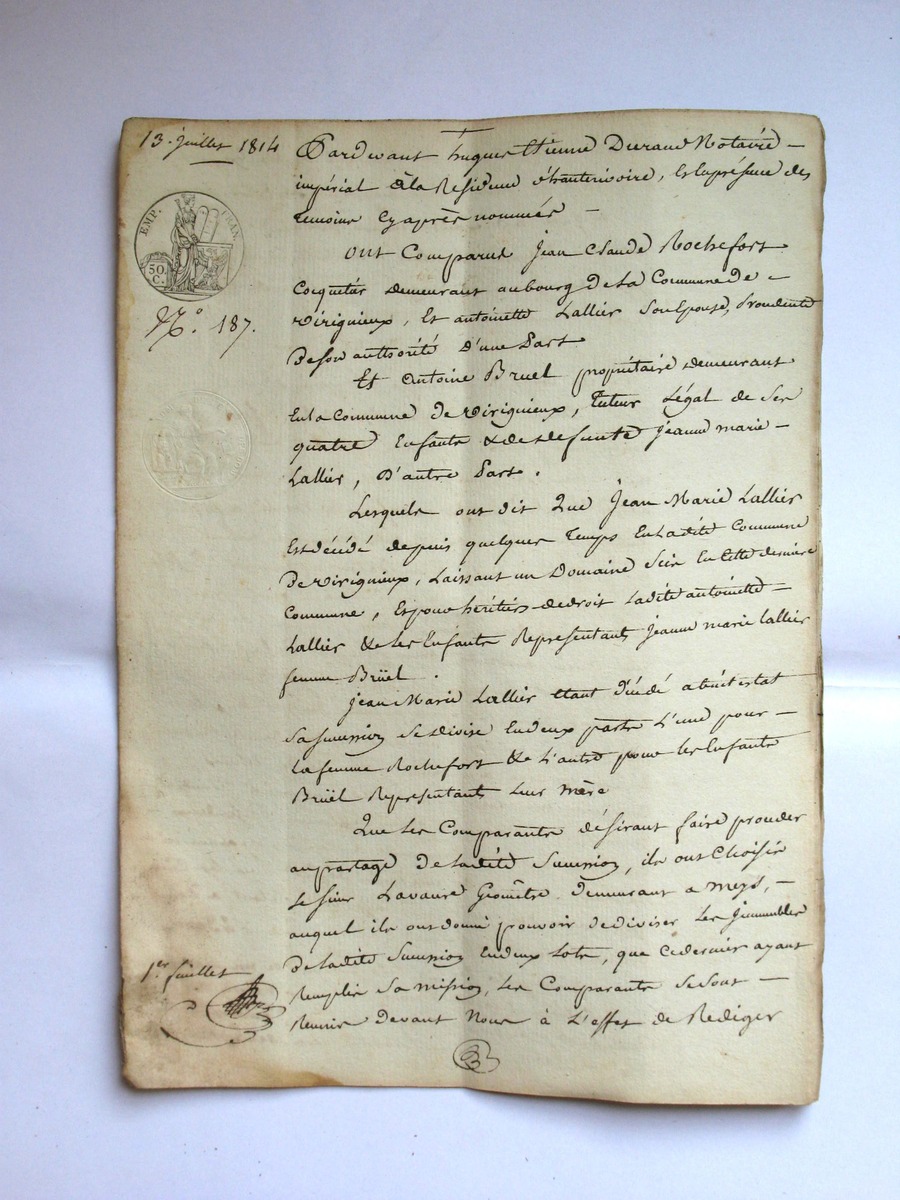 13. juillet 1814
EMP. FRAN
50. C.
N.° 187.
Pardevant hugues Etienne Durand Notaire –
impérial à la Residence d'hauterivoire, Et la présence des
temoins Cy après nommés –
Ont Comparus Jean Claude Rochefort
Coquetier demeurant au bourg de la Commune de –
virigneux, Et antoinette Lallier Son Epouse, Procedente
de son authorité D'une Part
Et Antoine Bruel propriétaire demeurant
En la Commune de virigneux, tuteur Légal de Ses
quatre Enfants & de defunte Jeanne marie –
Lallier, D'autre Part.
Lesquels ont dit Que Jean Marie Lallier
Est décédé depuis quelques temps En La dite Commune
de virigneux, Laissant un Domaine Scis En Cette derniere
Commune, Et pour héritiers de droit La dite antoinette –
Lallier & les Enfants Representants Jeanne marie lallier
femme Brüel.
Jean Marie Lallier Etant décédé abintestat
Sa Succession Se divise En deux parts L'une pour –
La femme Rochefort & L'autre pour les Enfants
Brüel Representants Leur mère
Que Les Comparants désirant faire proceder
au partage de La dite Succession, ils ont Choisis
Le Sieur Lavaure Géomêtre demeurant a meys, –
auquel ils ont donné pouvoir de diviser Les Jmmeubles
de La dite Succession En deux Lots, que Ce dernier ayant
Remplis Sa mission, Les Comparants Se Sont –
Reunis Devant Nous à L'effet de Rediger
1.er feuillet